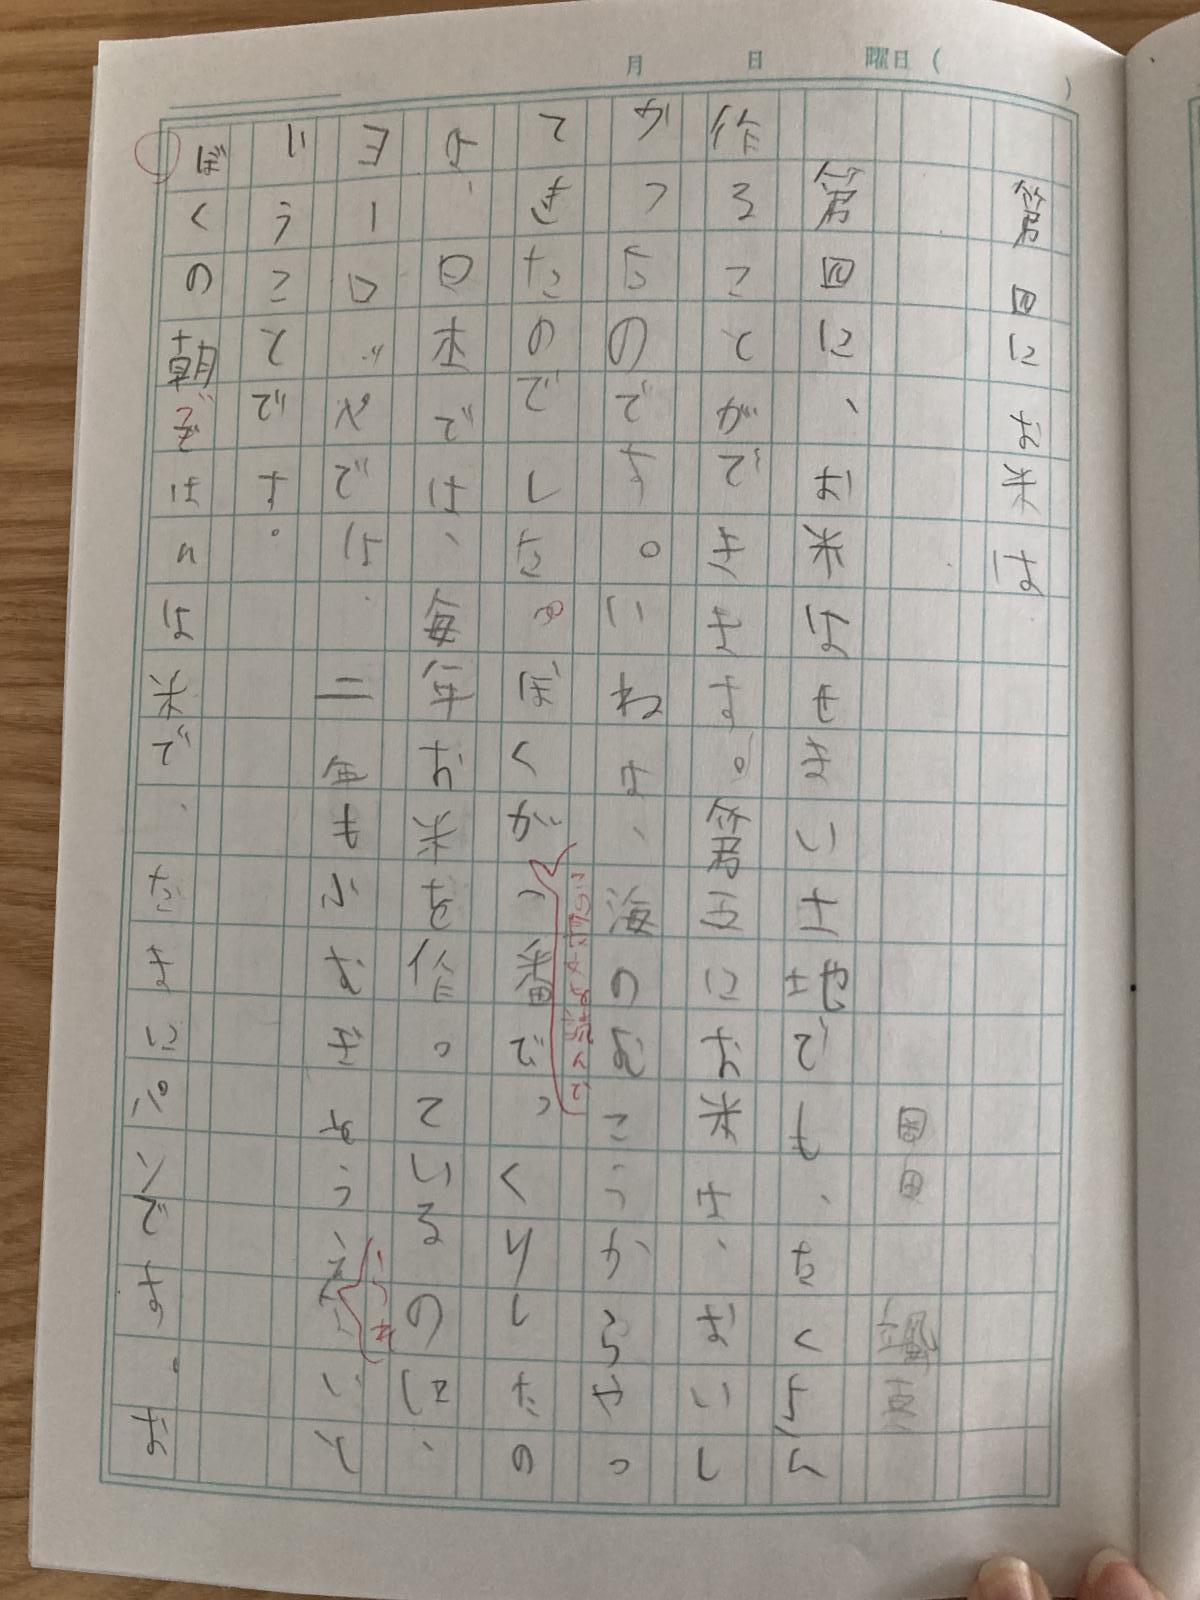 月 日 曜日 ( )
第四にお米は
第四に、お米はせまい土地でも、たくさん
作ることができます。第五にお米は、おいし
のです。いねは、海のむこうからやっ
てきたのでした。ぼくが一番びっくりしたの
は、日本では、毎年お米を作っているのに、
ヨーロッパでは、二年も小むぎ いと
いうことです。
ぼくの朝ごはんはお米で、たまにパンです。お